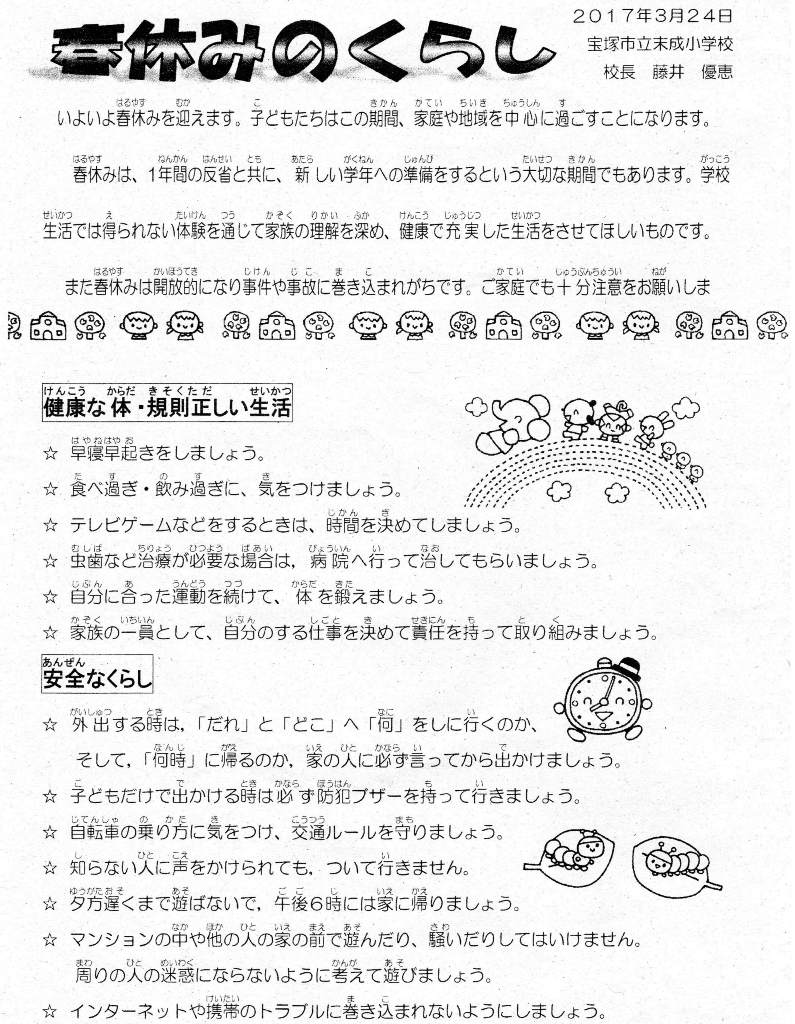 春休みのくらし
2017年3月24日
宝塚市立末成小学校
校長　藤井　優恵
いよいよ春休みを迎えます。子どもたちはこの期間、家庭や地域を中心に過ごすことになります。
春休みは、1年間の反省と共に、新しい学年への準備をするという大切な期間でもあります。学校
生活では得られない体験を通じて家族の理解を深め、健康で充実した生活をさせてほしいものです。
また春休みは開放的になり事件や事故に巻き込まれがちです。ご家庭でも十分注意をお願いしま
健康な体・規則正しい生活
☆ 早寝早起きをしましょう。
☆ 食べ過ぎ・飲み過ぎに、気をつけましょう。
☆ テレビゲームなどをするときは、時間を決めてしましょう。
☆ 虫歯など治療が必要な場合は，病院へ行って治してもらいましょう。
☆ 自分に合った運動を続けて、体を鍛えましょう。
☆ 家族の一員として、自分のする仕事を決めて責任を持って取り組みましょう。
安全なくらし
☆ 外出する時は，「だれ」と「どこ」へ「何」をしに行くのか、
そして，「何時」に帰るのか，家の人に必ず言ってから出かけましょう。
☆ 子どもだけで出かける時は必ず防犯ブザーを持って行きましょう。
☆ 自転車の乗り方に気をつけ、交通ルールを守りましょう。
☆ 知らない人に声をかけられても，ついて行きません。
☆ 夕方遅くまで遊ばないで，午後6時には家に帰りましょう。
☆ マンションの中や他の人の家の前で遊んだり、騒いだりしてはいけません。
周りの人の迷惑にならないように考えて遊びましょう。
☆ インターネットや携帯のトラブルに巻き込まれないようにしましょう。